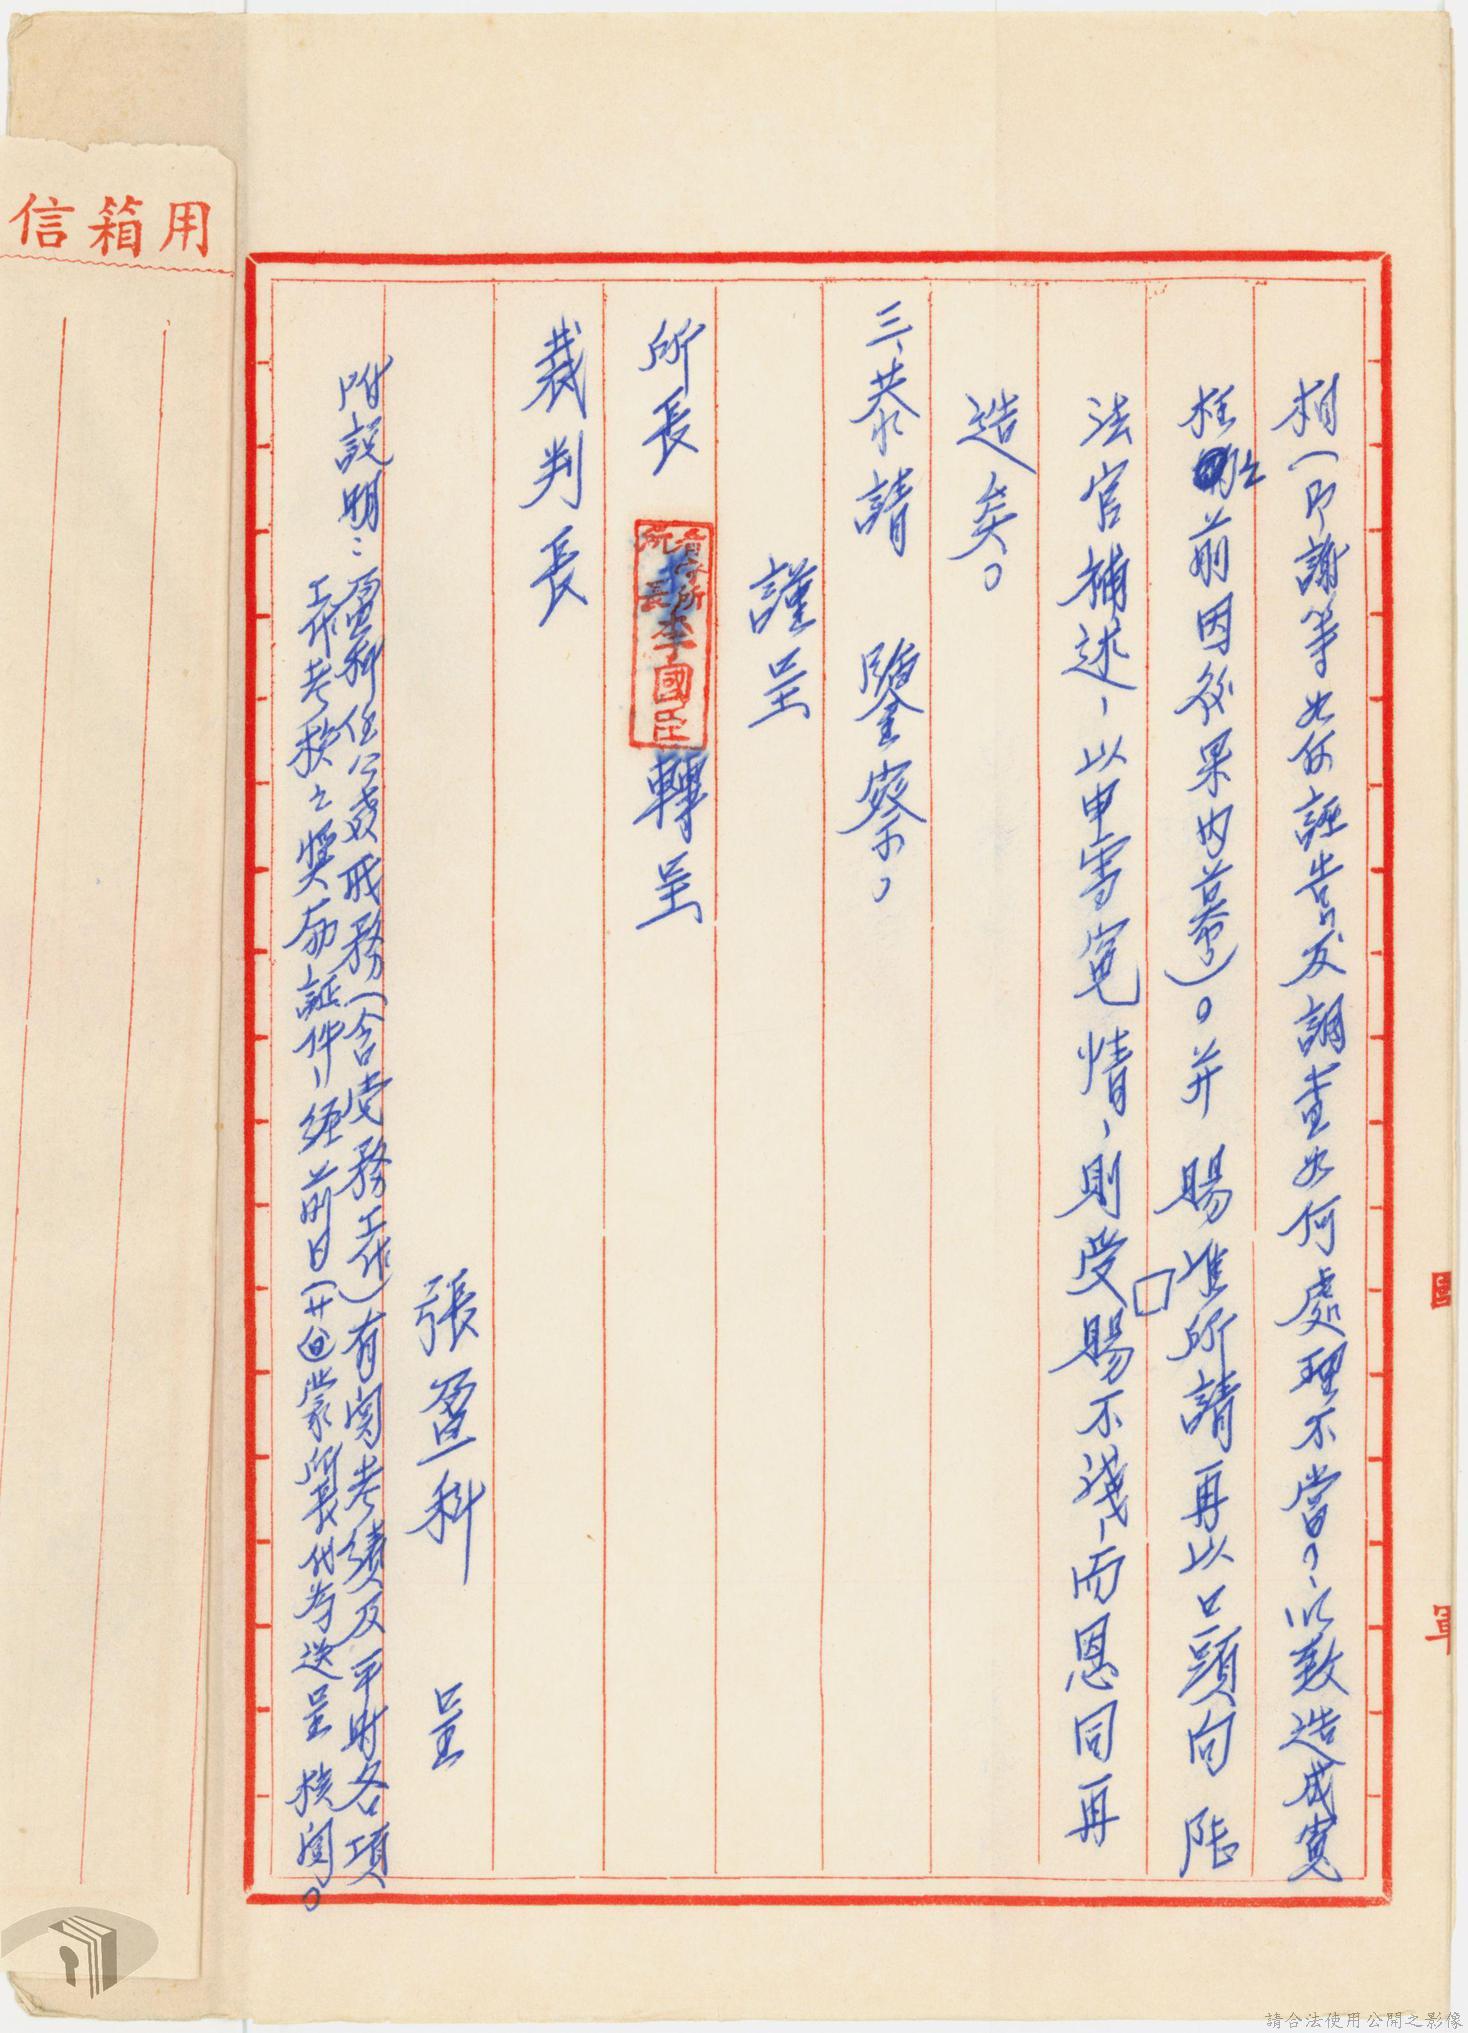 相（即謝等如何誣告及調查如何處理不當？、以致造成冤
枉之前因後果內幕）。并 賜准所請再以口頭向 陸
法官補述、以申雪冤情、則受賜不淺、而恩同再
造矣。
三、恭請 鑒察。
謹呈
所長 看守所所長李國臣 轉呈
裁判長
張盈科 呈
附說明：盈科任公賣職務（含黨務工作）有關考績及平時各項
工作考核之獎勵証件、經前日（廿四）蒙所長代為送呈 核閱。
信箱用
國
軍
請合法使用公開之影像